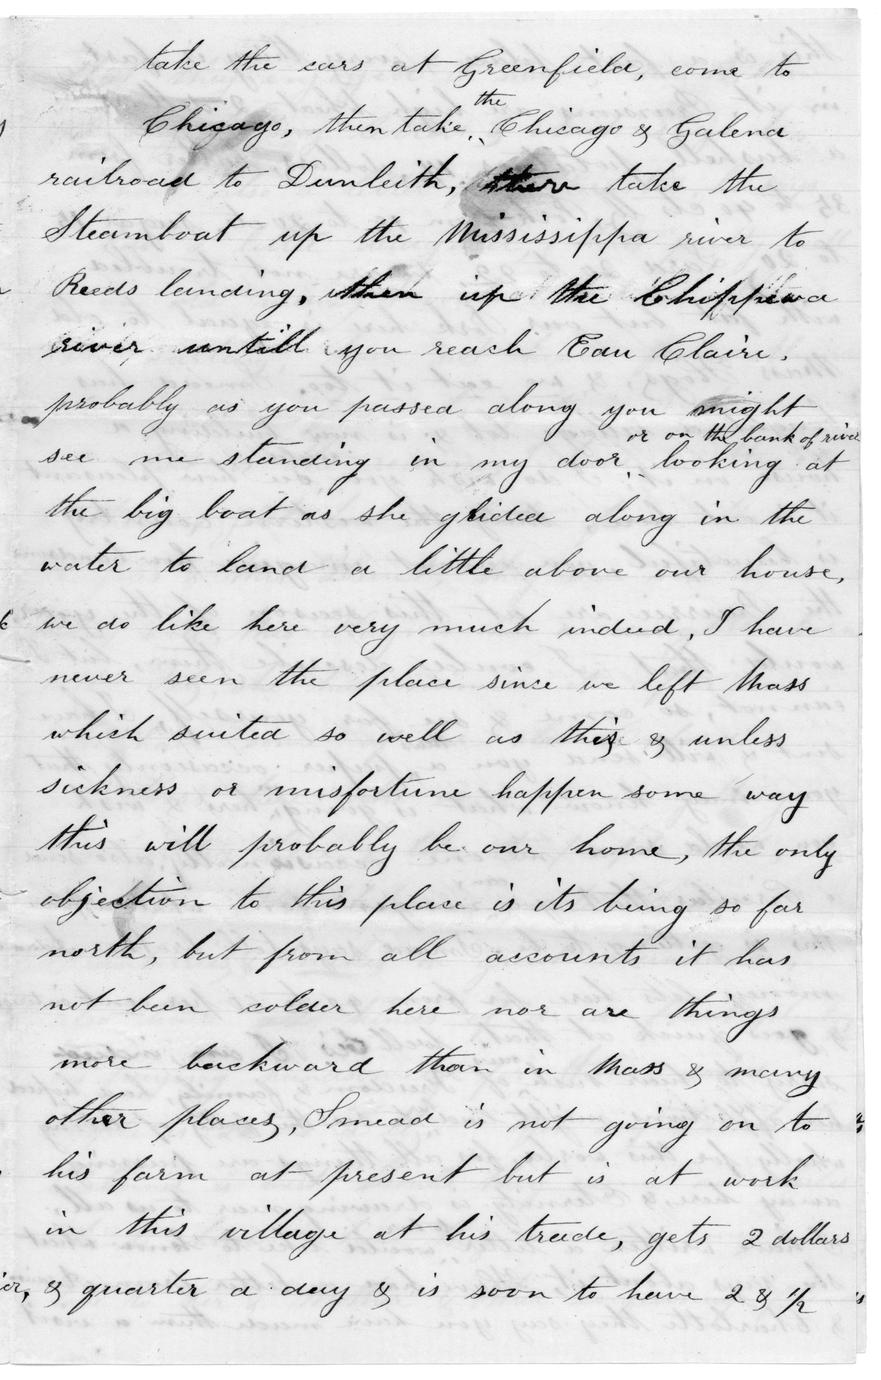 take the cars at Greenfield, come to
Chicago, then take the Chicago & Galena
railroad to Dunleith, there take the
Steamboat up the Mississippa river to
Reeds landing, then up the Chippewa
river untill you reach Eau Claire.
probably as you passed along you might
or on the bank of river
see me standing in my door looking at
the big boat as she glided along in the
water to land a little above our house,
we do like here very much indeed, I have
never seen the place since we left Mass
which suited so well as this & unless
sickness or misfortune happen some way
this will probably be our home, the only
objection to this place is its being so far
north, but from all accounts it has
not been colder here nor are things
more backward than in Mass & many
other places, Smead is not going on to
his farm at present but is at work
in this village at his trade, gets 2 dollars
& quarter a day & is soon to have 2 & 1/2